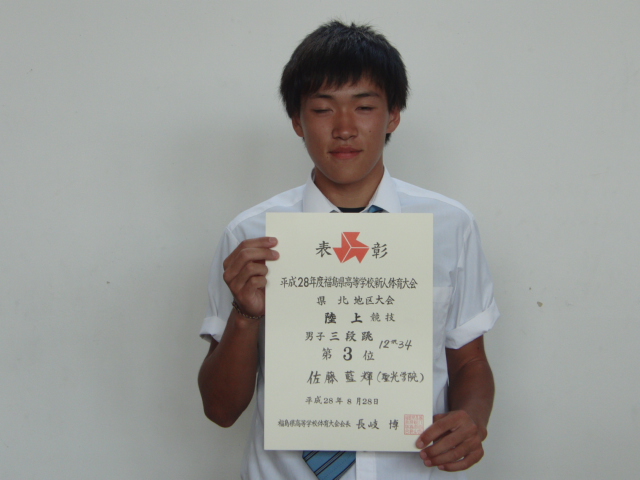 表彰
平成28年度福島県高等学校新人体育大会
県北地区大会
陸上競技
男子三段跳 12m34
第3位
佐藤藍輝(聖光学院)
平成28年8月28日
福島県高等学校体育大会会長 長岐博